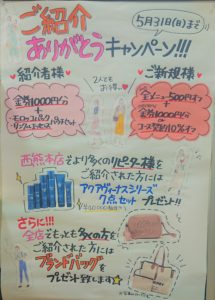 ご紹介
5月31日(日)まで
ありがとうキャンペーン!!!
♥紹介者様♥
2人とも
お得に♥
♥ご新規様♥
金券1000円分
+
モロッコパック
全メニュー500円オフ
+
金券1000円分
or
コース契約10%オフ
西熊本店 そより多くのリピーター様を
ご紹介された方には
アクアヴィーナスシリーズ
7点セット プレゼント!!
さらに!!!
全店でもっとも多くの方を
ご紹介された方には
ブランドバッグを
プレゼント致します★